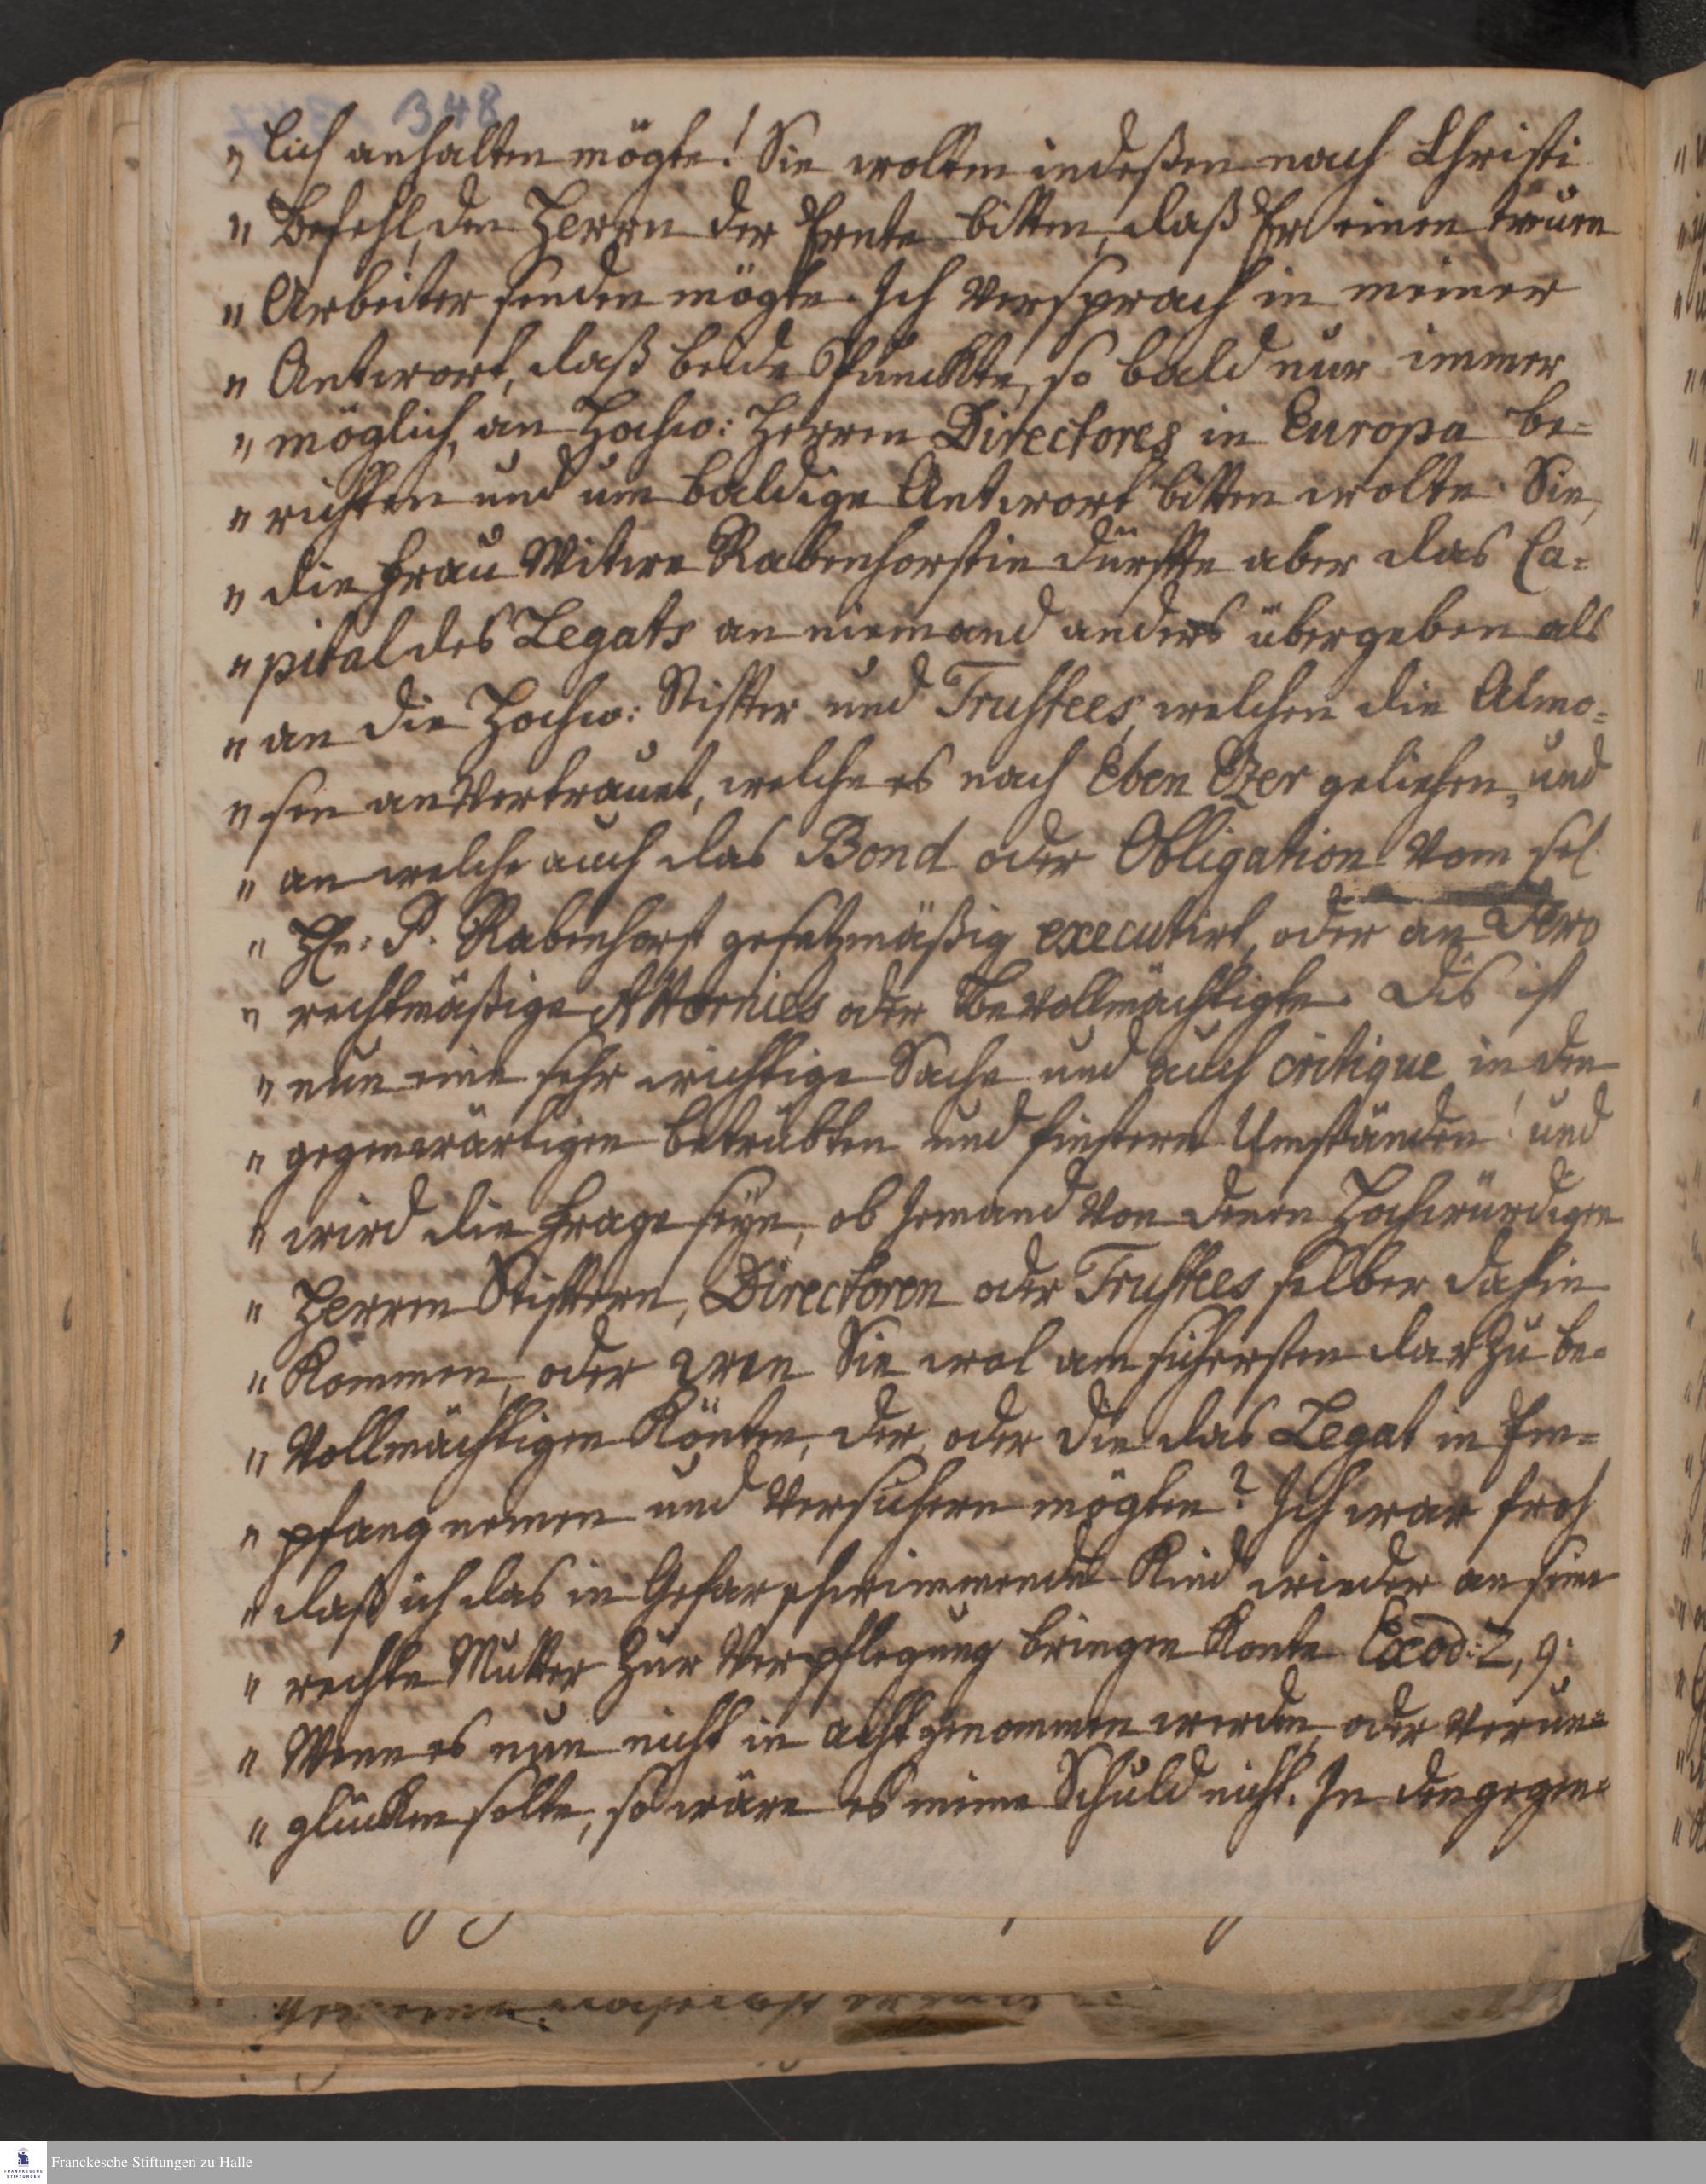 348
„ lich anhalten mögte! Sie wolten indeßen nach Christi
„ Befehl, den Herrn der Ernte bitten, daß Er einen treuen
„ Arbeiter senden mögte. Ich versprach in meiner
„ Antwort, daß beide Punckte, so bald nur immer
„ möglich, an Hochw: Herren Directores in Europa be=
„ richten und um baldige Antwort bitten wolte. Sie,
„ die Frau Witwe Rabenhorstin dürfte aber das Ca=
„ pital des Legats an niemand anders übergeben als
„ an die Hochw: Stifter und Trustees, welchen die Almo=
„ sen anvertrauet, welche es nach Eben Ezer geliehen, und
„ an welche auch das Bond oder Obligation vom sel.
„ Hn: P. Rabenhorst gesetzmäßig executirt, oder an Dero
„ rechtmäßige Attornies oder Bevollmächtigte. Dis ist
„ nun eine sehr wichtige Sache und auch critique in den
„ gegenwärtigen betrübten und finstern Umständen! und
„ wird die Frage seyn, ob Jemand von denen Hochwürdigen
„ Herren Stiftern, Directoren oder Trustees selber dahin
„ kommen, oder wen Sie wol am sichersten darzu be=
„ vollmächtigen könten, der, oder die das Legat in Em=
„ pfang nemen und versichern mögten? Ich war froh
„ daß ich das in Gefar schwimmende Kind wieder an seine
„ rechte Mutter zur Verpflegung bringen konte Exod: 2, 9.
„ Wenn es nun nicht in acht genommen werden, oder verun=
„ glücken solte, so wäre es meine Schuld nicht. In den gegen=
Franckesche Stiftungen zu Halle